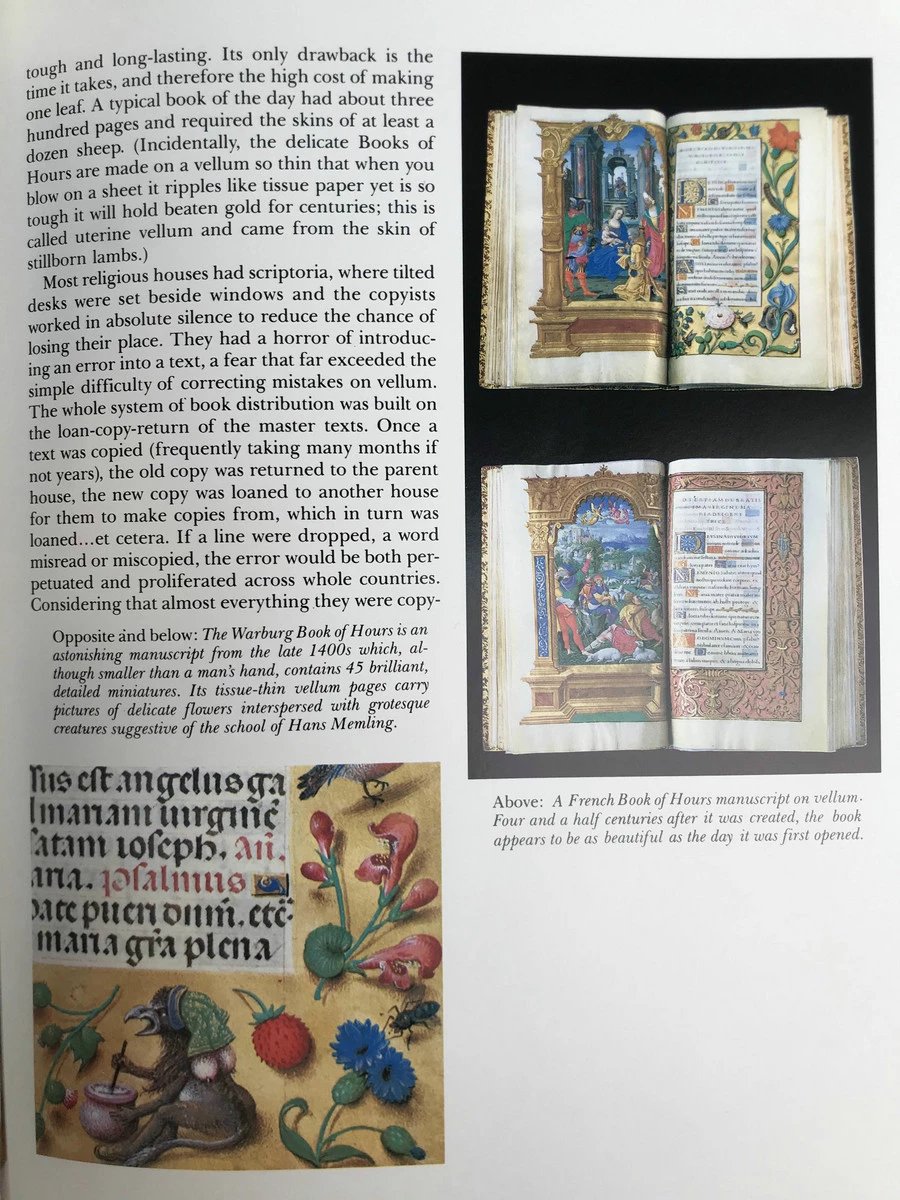 tough and long-lasting. Its only drawback is the
time it takes, and therefore the high cost of making
one leaf. A typical book of the day had about three
hundred pages and required the skins of at least a
dozen sheep. (Incidentally, the delicate Books of
Hours are made on a vellum so thin that when you
blow on a sheet it ripples like tissue paper yet is so
tough it will hold beaten gold for centuries; this is
called uterine vellum and came from the skin of
stillborn lambs.)
Most religious houses had scriptoria, where tilted
desks were set beside windows and the copyists
worked in absolute silence to reduce the chance of
losing their place. They had a horror of introduc-
ing an error into a text, a fear that far exceeded the
simple difficulty of correcting mistakes on vellum.
The whole system of book distribution was built on
the loan-copy-return of the master texts. Once a
text was copied (frequently taking many months if
not years), the old copy was returned to the parent
house, the new copy was loaned to another house
for them to make copies from, which in turn was
loaned...et cetera. If a line were dropped, a word
misread or miscopied, the error would be both per-
petuated and proliferated across whole countries.
Considering that almost everything they were copy-
Opposite and below: The Warburg Book of Hours is an
astonishing manuscript from the late 1400s which, al-
though smaller than a man's hand, contains 45 brilliant,
detailed miniatures. Its tissue-thin vellum pages carry
pictures of delicate flowers interspersed with grotesque
creatures suggestive of the school of Hans Memling.
est angelus ga
mariam virginē
atam ioseph. Añ.
ana. psalmus
pueri dnm̄. etc̄
maria gr̄a plena
Above: A French Book of Hours manuscript on vellum.
Four and a half centuries after it was created, the book
appears to be as beautiful as the day it was first opened.